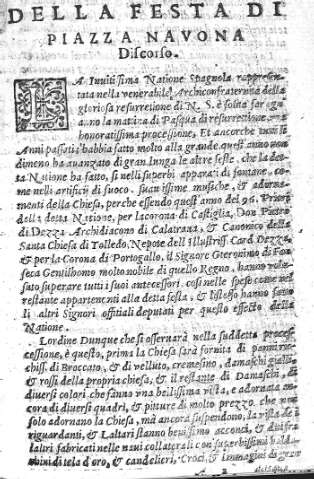 DELLA FESTA DI
PIAZZA NAVONA
Discorso.
LA Inuitissima Natione Spagnola rappresen-
tata nella venerabile Archiconfraternita della
gloriosa resurrettione di N. S. è solita far ogni
anno la matina di Pasqua di resurrettione, una
honoratissima processione, Et ancorche in questi
Anni passati l'habbia fatto molto alla grande quest'anno non
dimeno ha auanzato di gran lunga le altre feste che la det-
ta Natione ha fatto, si nelli superbi apparati di fontane, co-
me nelli artificii di fuoco, suauissime musiche, & adorna-
menti della Chiesa, perche essendo quest'anno del 96. Priori
della detta Natione, per la corona di Castiglia, Don Pietro
di Dezza Archidiacono di Calatraua, & Canonico della
Santa Chiesa di Tolledo, Nepote dell'Illustriss. Card. Dezza
& per la Corona di Portogallo, il Signore Gieronimo di Fon-
seca Gentilhomo molto nobile di quello Regno, hanno volu-
suto superare tutti i suoi antecessori, cosi nelle spese come nel
restante appartenenti alla detta festa, & l'istesso hanno fatto
li altri Signori offitiali deputati per questo effetto della
Natione.
Lordine Dunque che si osseruarà nella suddetta proces-
cessione, è questo, prima la Chiesa sarà fornita di panni ric-
chiss. di Broccato, & di velluto, cremesino, damaschi gialli
& rossi della propria chiesa, & il restante di Damaschi, di
diuersi colori che fanno vna bellissima vista, e adornata an
cora di diuersi quadri, & pitture di molto prezzo che non
solo adornano la Chiesa, ma ancora suspendono, la vista de
riguardanti, & Laltari stanno benissimo acconci, & di altri
fabricati nelle naui collaterali con superbissimi bald
di tela d'oro, & candelieri, Croci, & Immagini di gran